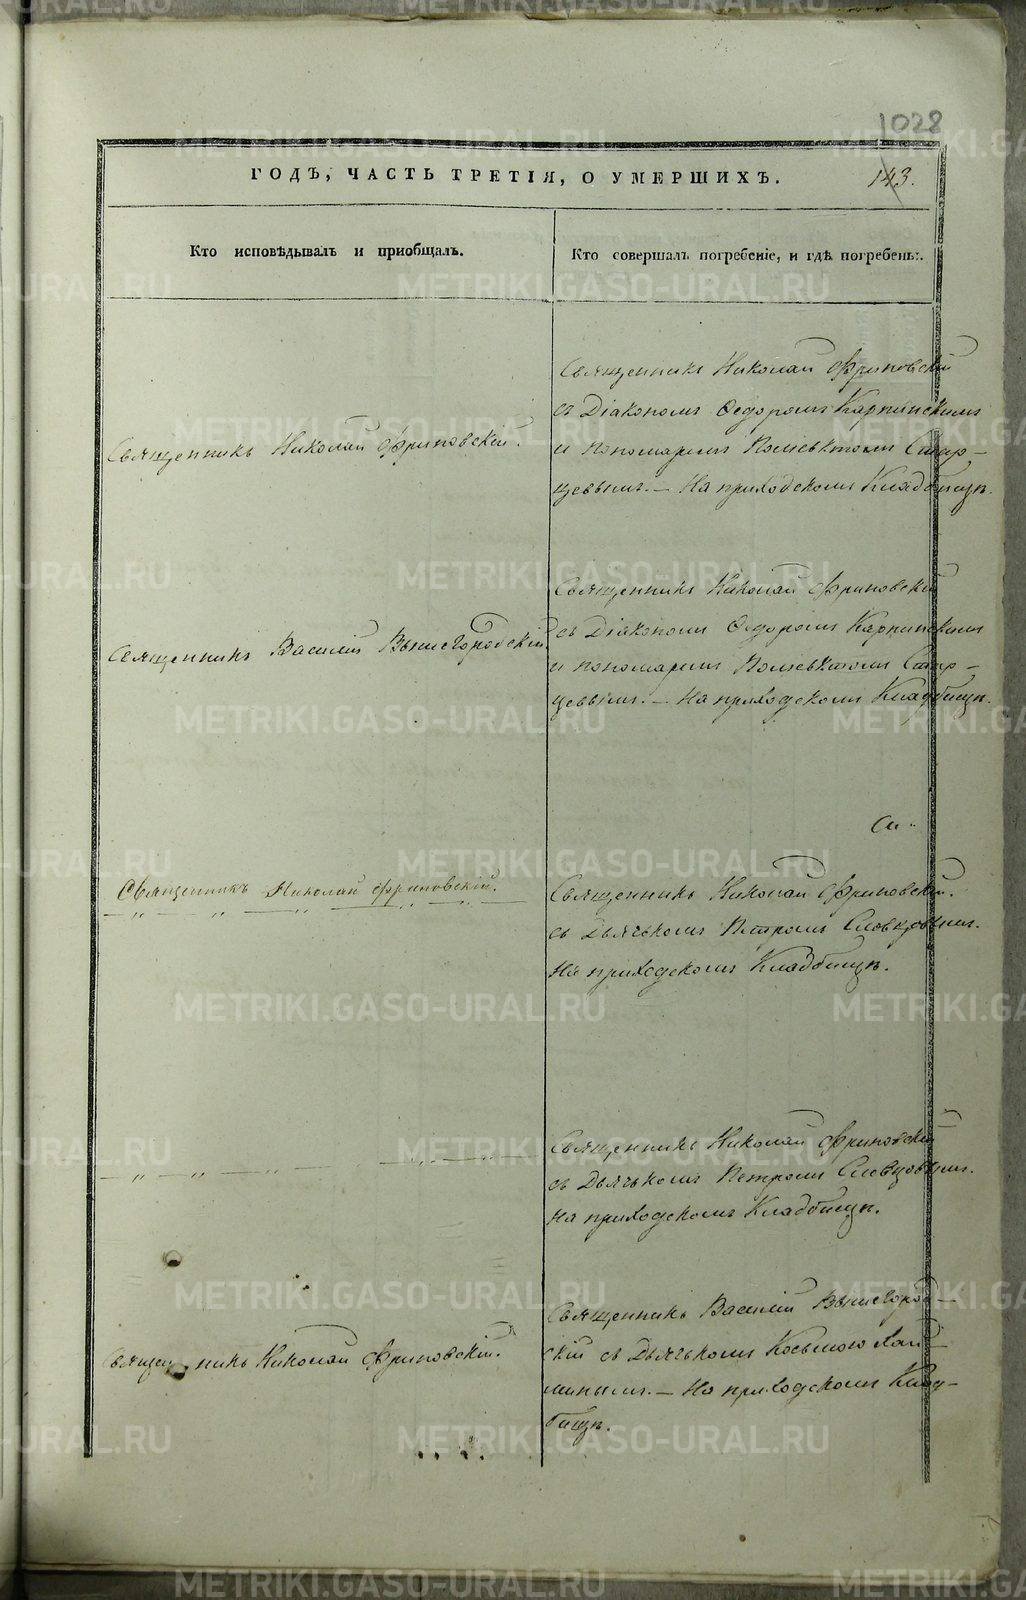 1022
ГОДЪ, ЧАСТЬ ТРЕТІЯ, О УМЕРШИХЪ.
143.
Кто исповѣдывалъ и пріобщалъ.
Кто совершалъ погребеніе, и гдѣ погребены.
Священникъ Николай Фриновскій.
Священникъ Николай Фриновскій
съ Діакономъ Ѳедоромъ Карпинскимъ
и пономаремъ Поліевктомъ Стар-
цевымъ. — На приходскомъ Кладбищѣ.
Священникъ Василій Вышегородскій
Священникъ Николай Фриновскій
съ Діакономъ Ѳедоромъ Карпинскимъ
и пономаремъ Поліевктомъ Стар-
цевымъ. — На приходскомъ Кладбищѣ.
Священникъ Николай Фриновскій.
Священникъ Николай Фриновскій.
съ Дьячкомъ Петромъ Словцовымъ.
На приходскомъ Кладбищѣ.
Священникъ Николай Фриновскій
съ Дьячкомъ Петромъ Словцовымъ.
На приходскомъ Кладбищѣ.
Священникъ Николай Фриновскій.
Священникъ Василій Вышегород-
скій съ Дьячкомъ Косьмою
— На приходскомъ Клад-
бищѣ.
METRIKI.GASO-URAL.RU